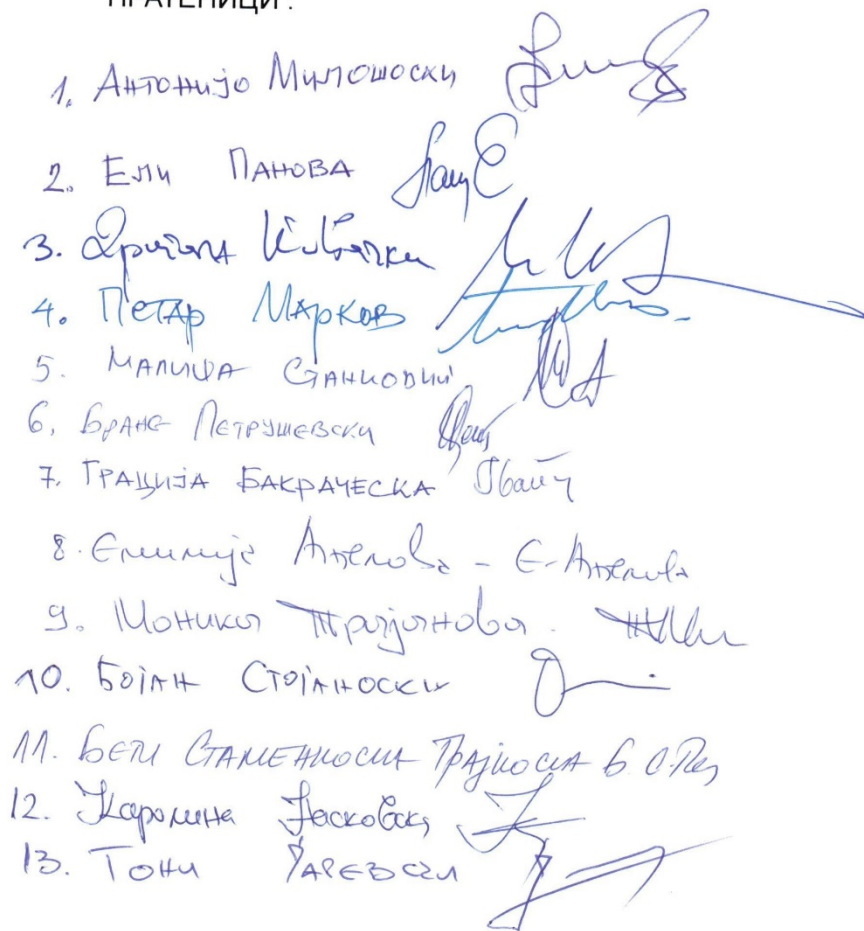 ПРАТЕНИЦИ:
1. Антонијо Милошоски
2. Ели Панова
3. Драгана
4. Петар Марков
5. Малиша Станковиќ
6. Бране Петрушевски
7. Грација Бакраческа
8. Емилија Ангелова - Е. Ангелова
9. Моника Трајанова
10. Бојан Стојаноски
11. Бети Стаменкоска Трајкоска
12. Каролина
13. Тони Јаревски